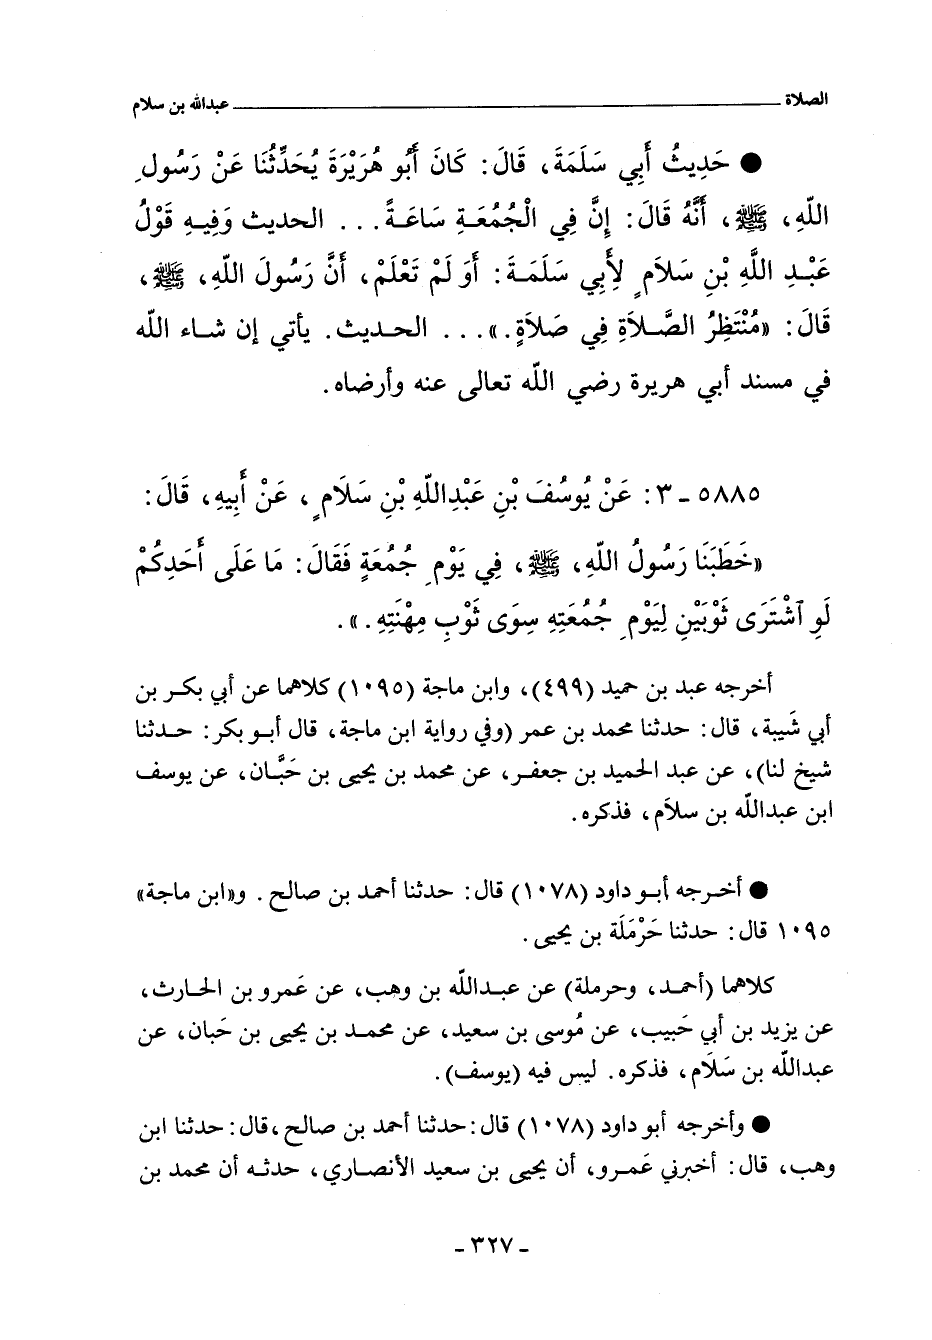 الصلاة عبدالله بن سلام
● حَدِيثُ أَبِي سَلَمَةَ، قَالَ: كَانَ أَبُو هُرَيْرَةَ يُحَدِّثُنَا عَنْ رَسُولِ
اللّهِ، ﷺ، أَنَّهُ قَالَ: إِنَّ فِي الْجُمُعَةِ سَاعَةً... الحديث وَفِيهِ قَوْلُ
عَبْدِ اللَّهِ بْنِ سَلاَمٍ لِأَبِي سَلَمَةَ: أَوَ لَمْ تَعْلَمْ، أَنَّ رَسُولَ اللّهِ، ﷺ،
قَالَ: «مُنْتَظِرُ الصَّلاَةِ فِي صَلاَةٍ.»... الحديث. يأتي إن شاء اللّه
في مسند أبي هريرة رضي اللّه تعالى عنه وأرضاه.
٥٨٨٥ - ٣: عَنْ يُوسُفَ بْنِ عَبْدِاللّهِ بْنِ سَلَامٍ، عَنْ أَبِيهِ، قَالَ:
«خَطَبَنَا رَسُولُ اللّهِ، ﷺ، فِي يَوْمِ جُمُعَةٍ فَقَالَ: مَا عَلَى أَحَدِكُمْ
لَوِ ٱشْتَرَى ثَوْبَيْنِ لِيَوْمِ جُمُعَتِهِ سِوَى ثَوْبِ مِهْنَتِهِ.».
أخرجه عبد بن حميد (٤٩٩)، وابن ماجة (١٠٩٥) كلاهما عن أبي بكر بن
أبي شَيبة، قال: حدثنا محمد بن عمر (وفي رواية ابن ماجة، قال أبو بكر: حدثنا
شيخ لنا)، عن عبد الحميد بن جعفر، عن محمد بن يحيى بن حَبَّان، عن يوسف
ابن عبداللّه بن سلاَم، فذكره.
● أخرجه أبو داود (١٠٧٨) قال: حدثنا أحمد بن صالح. و«ابن ماجة»
١٠٩٥ قال: حدثنا حَرْمَلَة بن يحيى.
كلاهما (أحمد، وحرملة) عن عبداللّه بن وهب، عن عَمرو بن الحارث،
عن يزيد بن أبي حَبيب، عن مُوسى بن سعيد، عن محمد بن يحيى بن حَبان، عن
عبداللّه بن سَلَام، فذكره. ليس فيه (يوسف).
● وأخرجه أبو داود (١٠٧٨) قال: حدثنا أحمد بن صالح، قال: حدثنا ابن
وهب، قال: أخبرني عَمرو، أن يحيى بن سعيد الأنصاري، حدثه أن محمد بن
- ٣٢٧ -